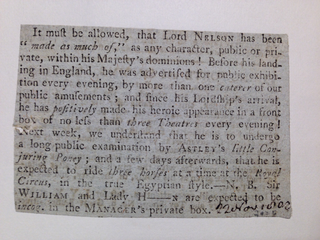 It must be allowed, that Lord NELSON has been
"made as much of," as any character, public or pri-
vate, within his Majesty's dominions! Before his land-
ing in England, he was advertised for public exhibi-
tion every evening, by more than one caterer of our
public amusements; and since his Lordship's arrival,
he has positively made his heroic appearance in a front
box of no less than three Theatres every evening!
Next week, we understand that he is to undergo
a long public examination by ASTLEY's little Con-
juring Poney; and a few days afterwards, that he is
expected to ride three horses at a time at the Royal
Circus, in the true Egyptian style.—N. B. Sir
WILLIAM and Lady H——n are expected to be
incog. in the MANAGER's private box. 22 Nov